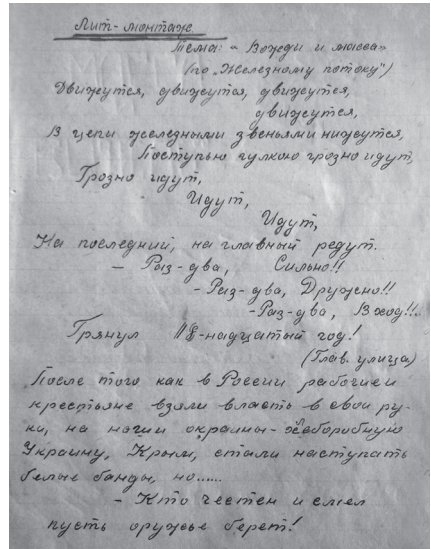 Лит-монтаж.
Тема: "Вожди и масса"
(по "Железному потоку")
Движутся, движутся, движутся,
движутся,
В цепи железными звеньями нижутся,
Поступью гулкою грозно идут,
Грозно идут,
Идут,
Идут,
На последний, на главный редут.
- Раз-два, Сильно!!
- Раз-два, Дружно!!
- Раз-два, В ход!!..
Грянул 18-надцатый год!
(Глав. улица)
После того как в России рабочие и
крестьяне взяли власть в свои ру-
ки, на наши окраины - хлеборобную
Украину, Крым, стали наступать
белые банды, но......
- Кто честен и смел
пусть оружье берет!